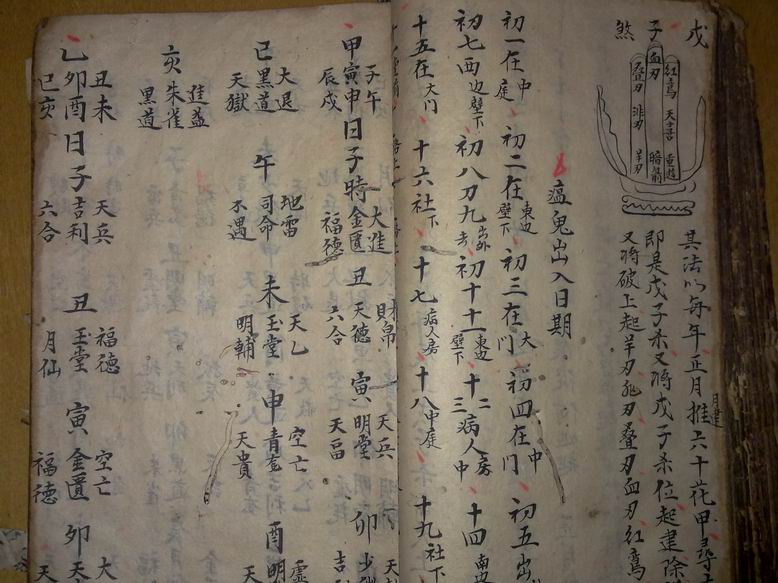 戊子煞
紅鸞 天喜 重遊
血刃 暗箭
疊刃 誹刃 羊刃
其法以每年正月推六十花甲尋
即是戊子杀又將戊子杀位起建除
又將破上起羊刃飛刃疊刃血刃紅鸞
瘟鬼出入日期
初一在中庭 初二在東边壁下 初三在大門 初四在中門 初五出
初七西边壁下 初八刀九出外去 初十十一東边壁下 十二三病人房中 十四南边
十五在大門 十六社下 十七病人房 十八中庭 十九社下
甲寅申日子時金匱 丑天德 寅明堂 卯
子午 辰戌 大進 福德 財帛 六合 天兵 天畐
己黑道 午司命 未玉堂 申青龙 酉明
大退 天獄 地雷 不遇 天乙 明輔 空亡 天貴
亥朱雀 進益 黑道
乙卯酉日子吉利 丑玉堂 寅金匱 卯天
丑未 巳亥 天兵 六合 福德 月仙 空亡 福德 大 天